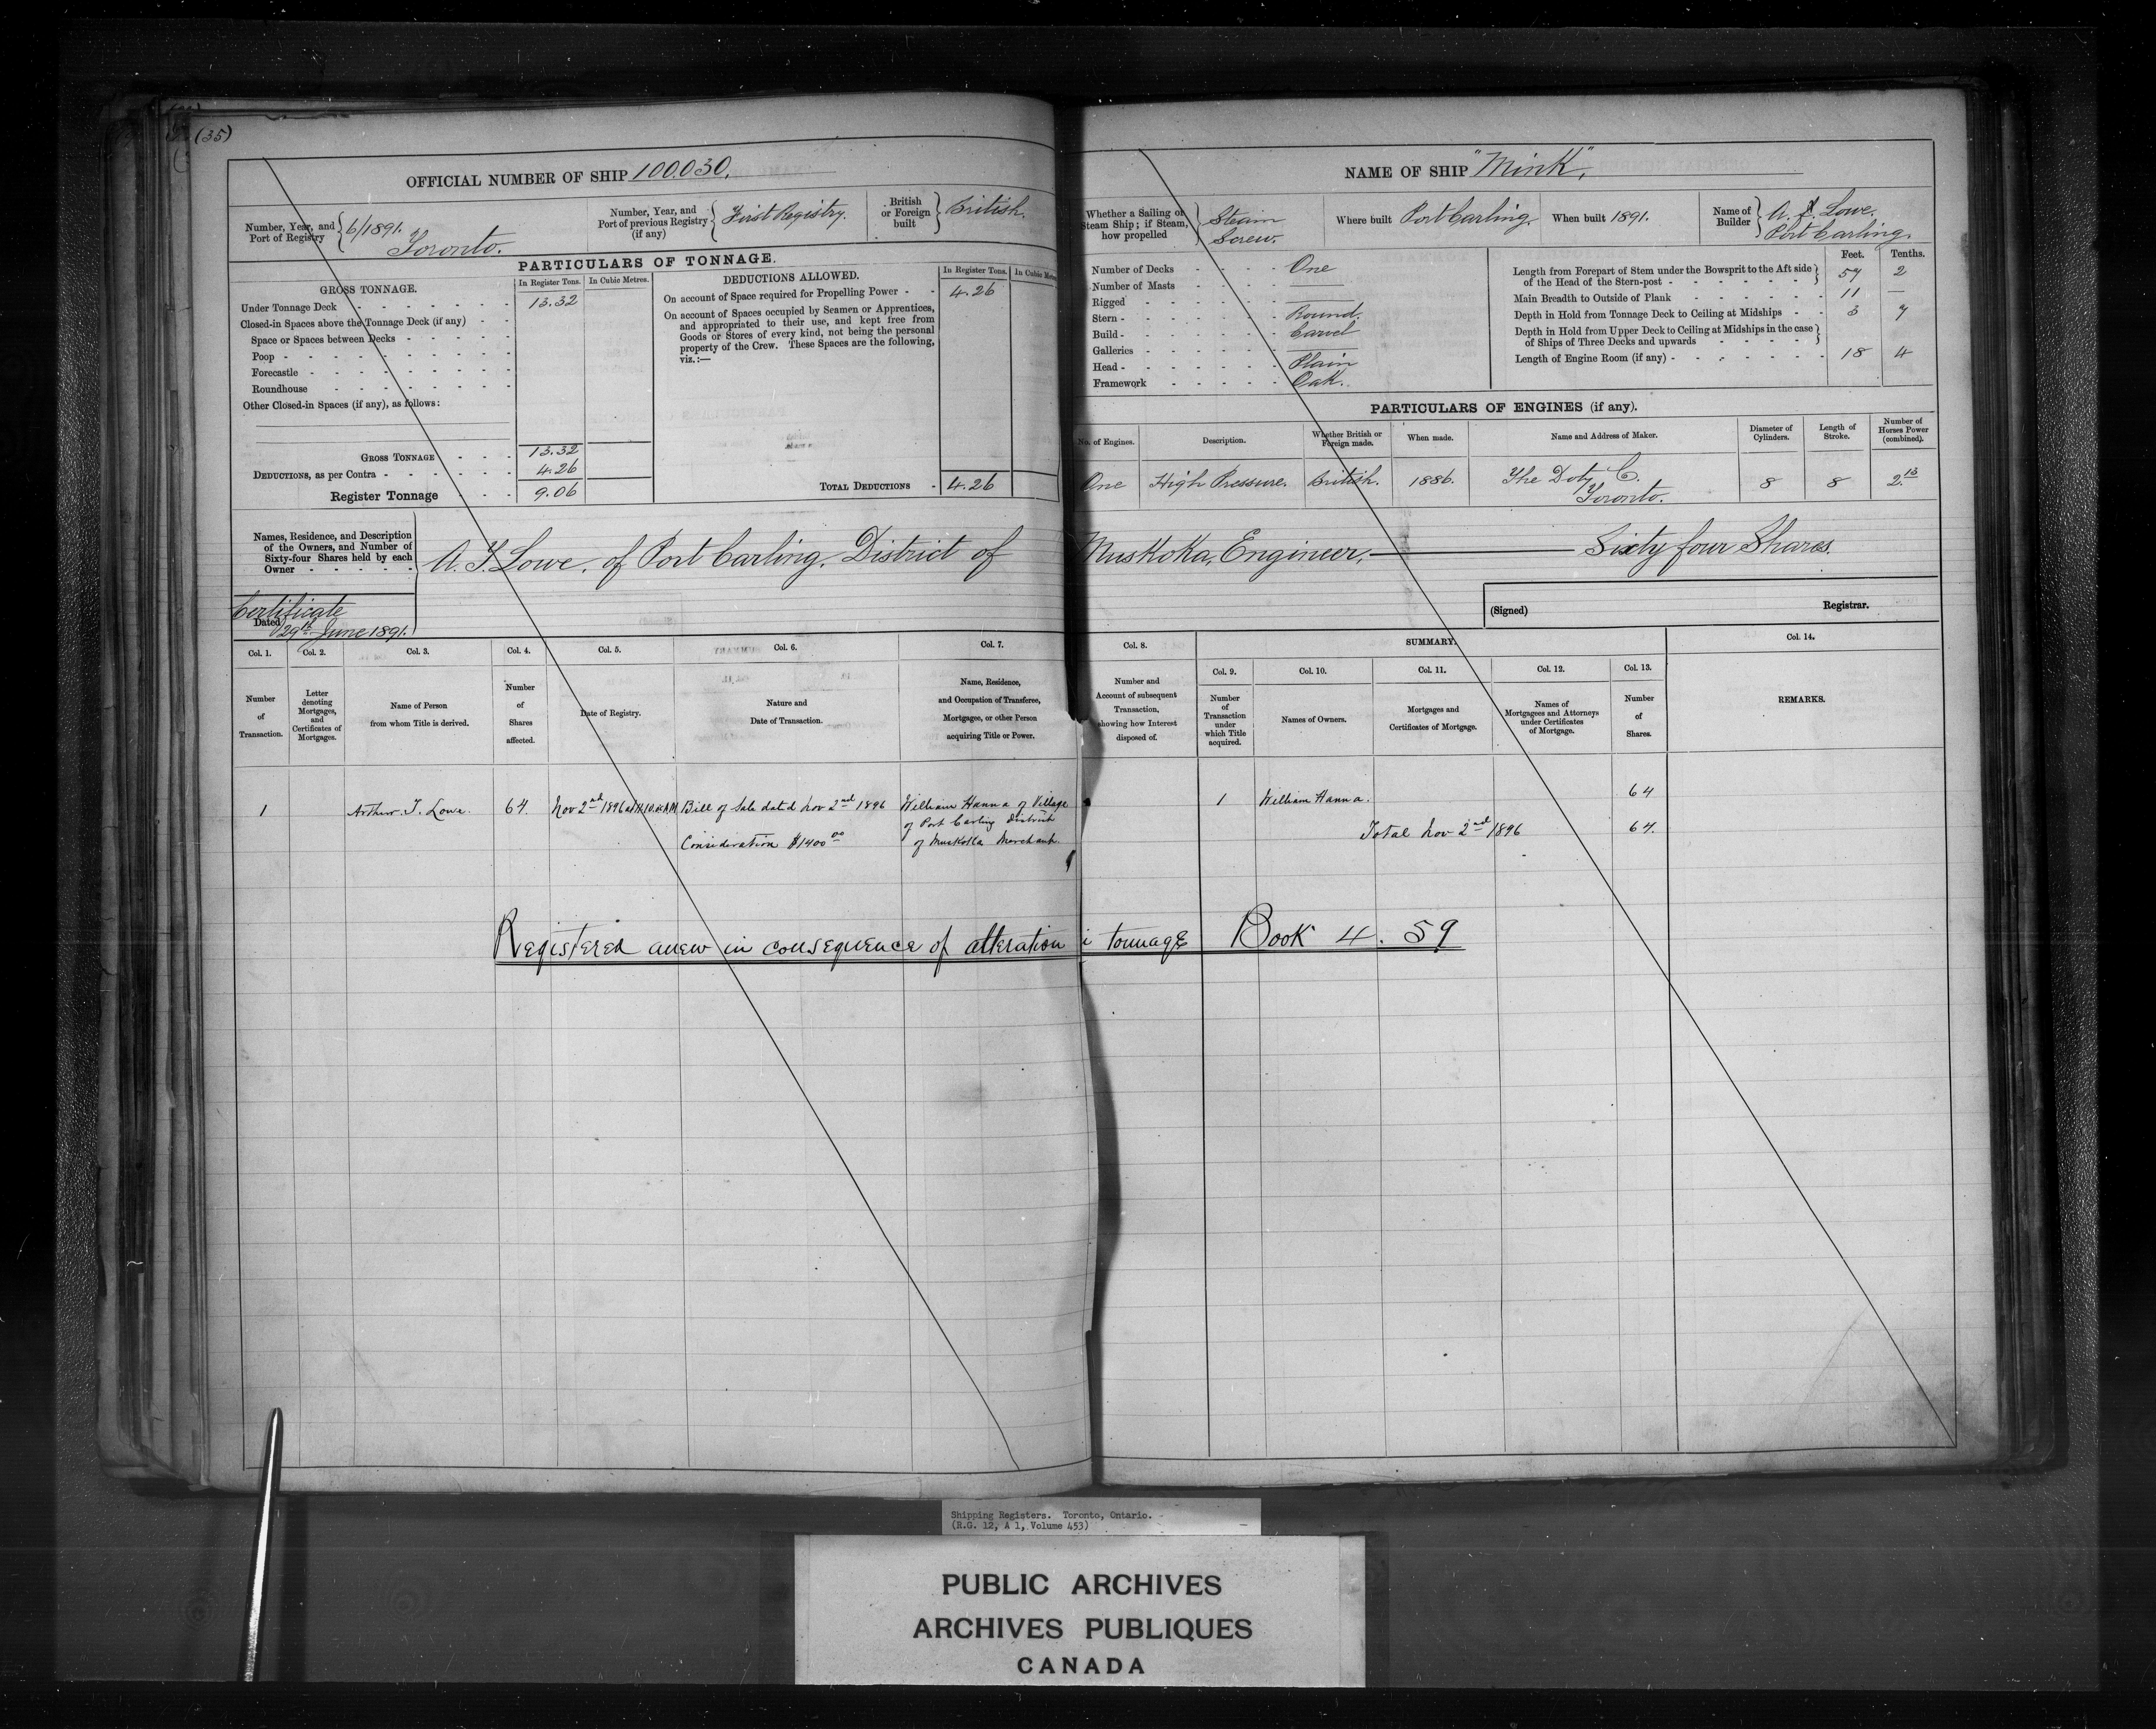 (35)
OFFICIAL NUMBER OF SHIP 100.030.
Number, Year, and Port of Registry 6/1891. Toronto.
Number, Year, and Port of previous Registry (if any) First Registry.
British or Foreign built British.
PARTICULARS OF TONNAGE.
GROSS TONNAGE.
In Register Tons. In Cubic Metres.
Under Tonnage Deck 13.32
Closed-in Spaces above the Tonnage Deck (if any)
Space or Spaces between Decks
Poop
Forecastle
Roundhouse
Other Closed-in Spaces (if any), as follows:
13.32
GROSS TONNAGE
DEDUCTIONS, as per Contra 4.26
Register Tonnage 9.06
DEDUCTIONS ALLOWED.
In Register Tons. In Cubic Metres
On account of Space required for Propelling Power 4.26
On account of Spaces occupied by Seamen or Apprentices,
and appropriated to their use, and kept free from
Goods or Stores of every kind, not being the personal
property of the Crew. These Spaces are the following,
viz.:—
TOTAL DEDUCTIONS 4.26
NAME OF SHIP "Mink".
Whether a Sailing or Steam Ship; if Steam, how propelled Steam Screw.
Where built Port Carling.
When built 1891.
Name of Builder A. J. Lowe. Port Carling.
Number of Decks One
Number of Masts
Rigged
Stern Round.
Build Carvel
Galleries
Head Plain
Framework Oak.
Feet. Tenths.
Length from Forepart of Stem under the Bowsprit to the Aft side of the Head of the Stern-post 57 2
Main Breadth to Outside of Plank 11 —
Depth in Hold from Tonnage Deck to Ceiling at Midships 3 7
Depth in Hold from Upper Deck to Ceiling at Midships in the case of Ships of Three Decks and upwards
Length of Engine Room (if any) 18 4
PARTICULARS OF ENGINES (if any).
No. of Engines. Description. Whether British or Foreign made. When made. Name and Address of Maker. Diameter of Cylinders. Length of Stroke. Number of Horses Power (combined).
One High Pressure. British. 1886. The Doty C. Toronto. 8 8 2.13
Names, Residence, and Description
of the Owners, and Number of
Sixty-four Shares held by each
Owner
A. J. Lowe, of Port Carling, District of Muskoka, Engineer, — Sixty four Shares.
Certificate
Dated 29th June 1891.
(Signed) Registrar.
Col. 1. Col. 2. Col. 3. Col. 4. Col. 5. Col. 6. Col. 7. Col. 8. SUMMARY. Col. 14.
Col. 9. Col. 10. Col. 11. Col. 12. Col. 13.
Number of Transaction.
Letter denoting Mortgages, and Certificates of Mortgages.
Name of Person from whom Title is derived.
Number of Shares affected.
Date of Registry.
Nature and Date of Transaction.
Name, Residence, and Occupation of Transferee, Mortgagee, or other Person acquiring Title or Power.
Number and Account of subsequent Transaction, showing how Interest disposed of.
Number of Transaction under which Title acquired.
Names of Owners.
Mortgages and Certificates of Mortgage.
Names of Mortgagees and Attorneys under Certificates of Mortgage.
Number of Shares.
REMARKS.
1 Arthur. J. Lowe. 64. Nov 2nd 1896 Bill of Sale dated Nov 2nd 1896 William Hanna of Village 1 William Hanna. 64
Consideration $1400 00 of Port Carling District Total Nov 2nd 1896 64.
of Muskoka Merchant.
Registered anew in consequence of alteration i tonnage Book 4. 59
Shipping Registers. Toronto, Ontario.
(R.G. 12, A 1, Volume 453)
PUBLIC ARCHIVES
ARCHIVES PUBLIQUES
CANADA